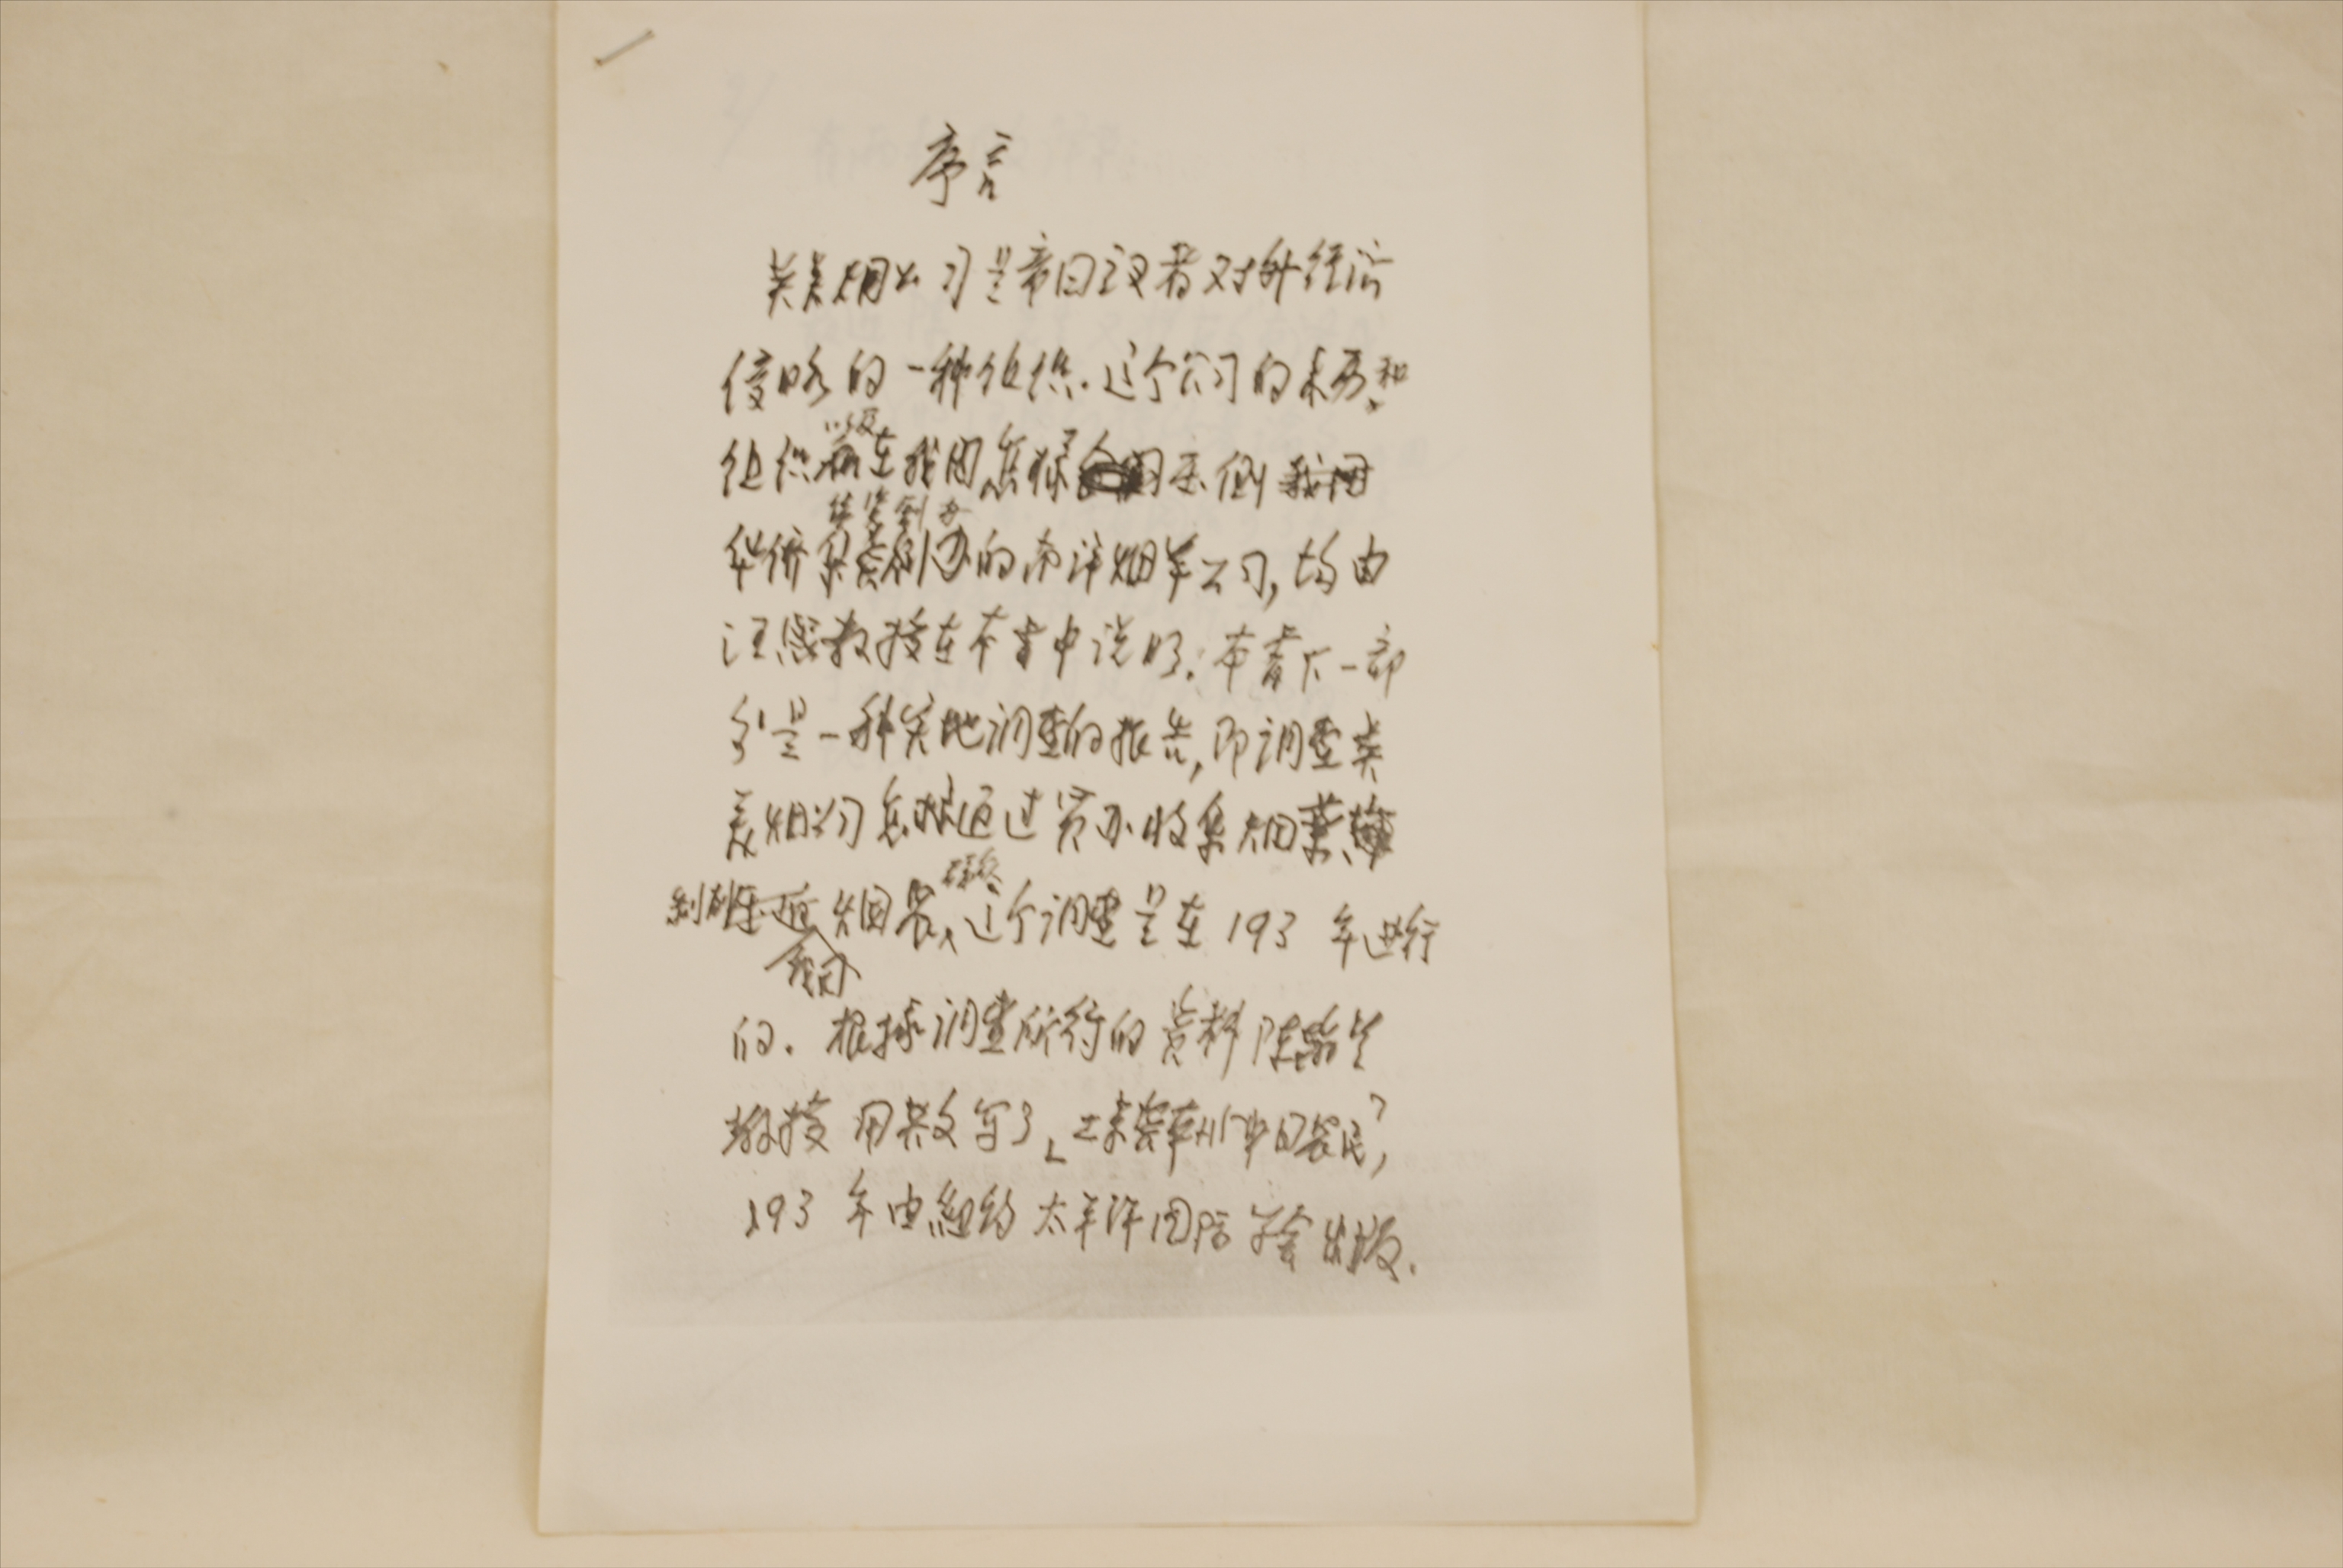 序言
英美烟公司是帝国主义者对外经济
侵略的一种组织.这个公司的来历和
组织以及在我国怎样压倒我国
华侨集资创办的南洋烟草公司,均由
汪熙教授在本书中说明.本书下一部
分是一种实地调查的报告,即调查英
美烟公司怎样通过买办收集烟叶
剥削压迫我国烟农,这个调查是在193 年进行
的.根据调查所得的资料陈翰笙
教授用英文写了「工业资本与中国农民」,
193 年由纽约太平洋国际学会出版.